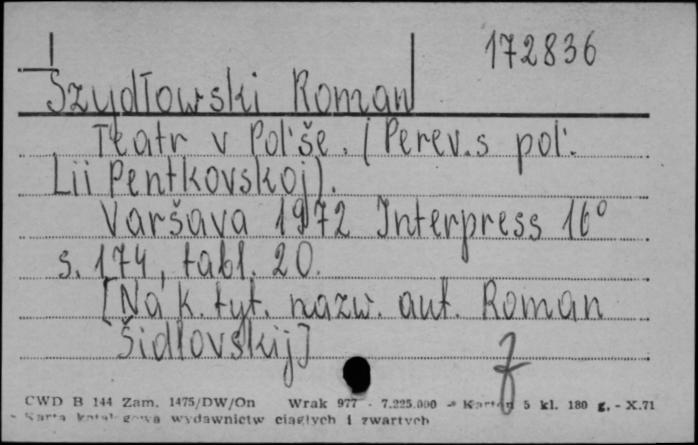 172836
Szydłowski Roman
Teatr v Pol'še. (Perev. s pol'.
Lii Pentkovskoj).
Varšava 1972 Interpress 16°
s. 174, tabl. 20.
[Na k. tyt. nazw. aut. Roman
Šidlovskij]
CWD B 144 Zam. 1475/DW/On Wrak 977 - 7.225.000 - Karton 5 kl. 180 g. - X.71
Karta katalogowa wydawnictw ciągłych i zwartych